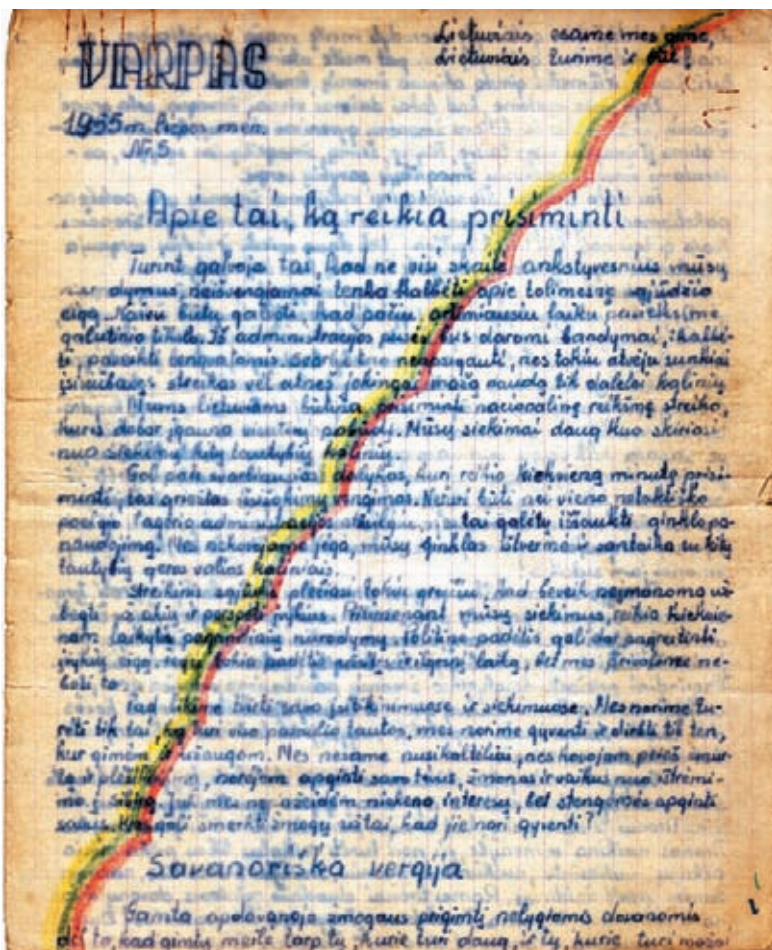 VARPAS
Lietuviais esame mes gimę,
Lietuviais turime ir būt!
1955 m. liepos mėn.
Nr. 5
Apie tai, ką reikia prisiminti
Turint galvoje tai, kad ne visi skaitė ankstyvesnius mūsų
neišvengiamai tenka kalbėti apie tolimesnę sąjūdžio
eigą. Naivu būtų galvoti, kad pačiu artimiausiu laiku
galutinio tikslo. Iš administracijos pusės bus daromi bandymai
nes tokiu atveju sunkiai
streikas vėl atneš juokingai mažą naudą tik daliai kalinių
Mums lietuviams būtina prisiminti nacionalinę reikšmę streiko,
kuris dabar įgauna pobūdį. Mūsų siekimai daug kuo skiriasi
nuo siekimų kitų tautybių kalinių.
Gal pats svarbiausias dalykas, kurį reikia kiekvieną minutę prisi-
minti, tai griežtas Neturi būti nei vieno netaktiško
poelgio lagerio administracijos tai galėtų iššaukti ginklo pa-
naudojimą. Mes nekovojame jėga, mūsų ginklas ištvermė ir santaika su kitų
tautybių geros valios kaliniais.
Streikinis sąjūdis plečiasi tokiu greičiu, kad beveik neįmanoma už-
bėgti už akių įvykius. Prisimenant mūsų siekimus, reikia kiekvie-
nam laikytis nurodymų. Politinė padėtis gali dar pagreitinti
įvykių eigą, tokia padėtis ilgesnį laiką, bet mes privalome ne-
boti to.
turime būti savo įsitikinimuose ir siekimuose. Mes norime tu-
rėti tik tai, ką turi viso pasaulio tautos, mes norime gyventi ir dirbti tik ten,
kur gimėm ir užaugom. Mes nesame nusikaltėliai, mes kovojom prieš smur-
tą ir plėšikavimą, norėjom apginti savo tėvus, žmonas ir vaikus nuo ištrėmi-
mo į Sibirą. Juk mes ne užeidėm niekeno interesų, bet stengėmės apginti
savus. Kas gali smerkti žmogų už tai, kad jis nori gyventi?
Savanoriška vergija
Gamta apdovanojo žmogaus prigimtį nelygiomis dovanomis
dėl to, kad gimtų meilė tarp tų, kurie turi daug, ir tų, kurie turi mažai